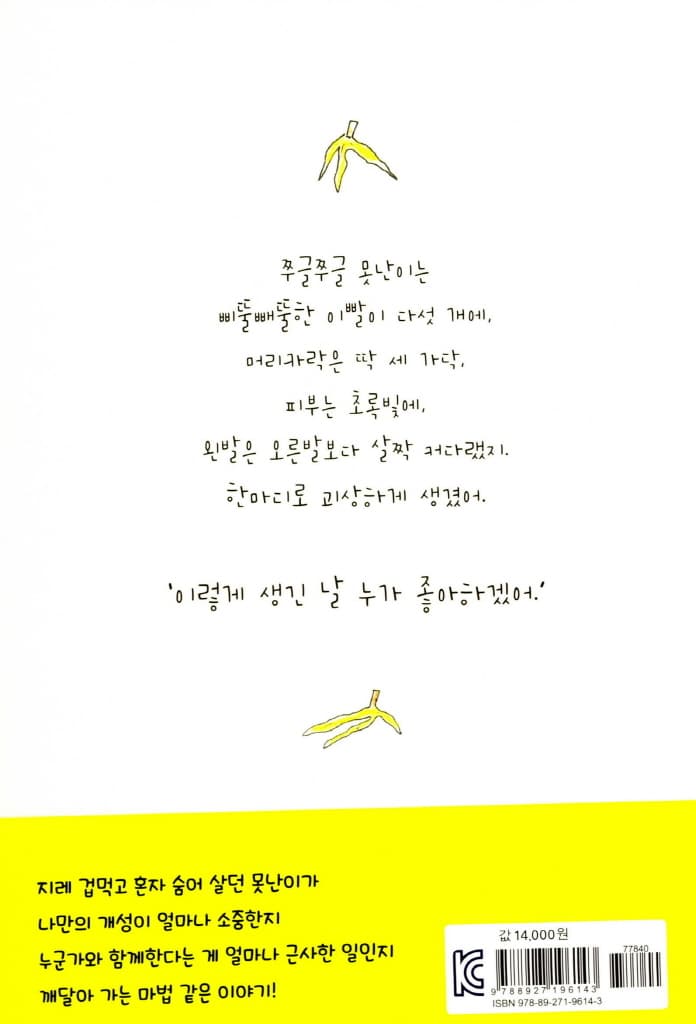 쭈글쭈글 못난이는
삐뚤빼뚤한 이빨이 다섯 개에,
머리카락은 딱 세 가닥,
피부는 초록빛에,
왼발은 오른발보다 살짝 커다랬지.
한마디로 괴상하게 생겼어.
'이렇게 생긴 날 누가 좋아하겠어.'
지레 겁먹고 혼자 숨어 살던 못난이가
나만의 개성이 얼마나 소중한지
누군가와 함께한다는 게 얼마나 근사한 일인지
깨달아 가는 마법 같은 이야기!
값 14,000원
77840
KC
9 788927 196143
ISBN 978-89-271-9614-3